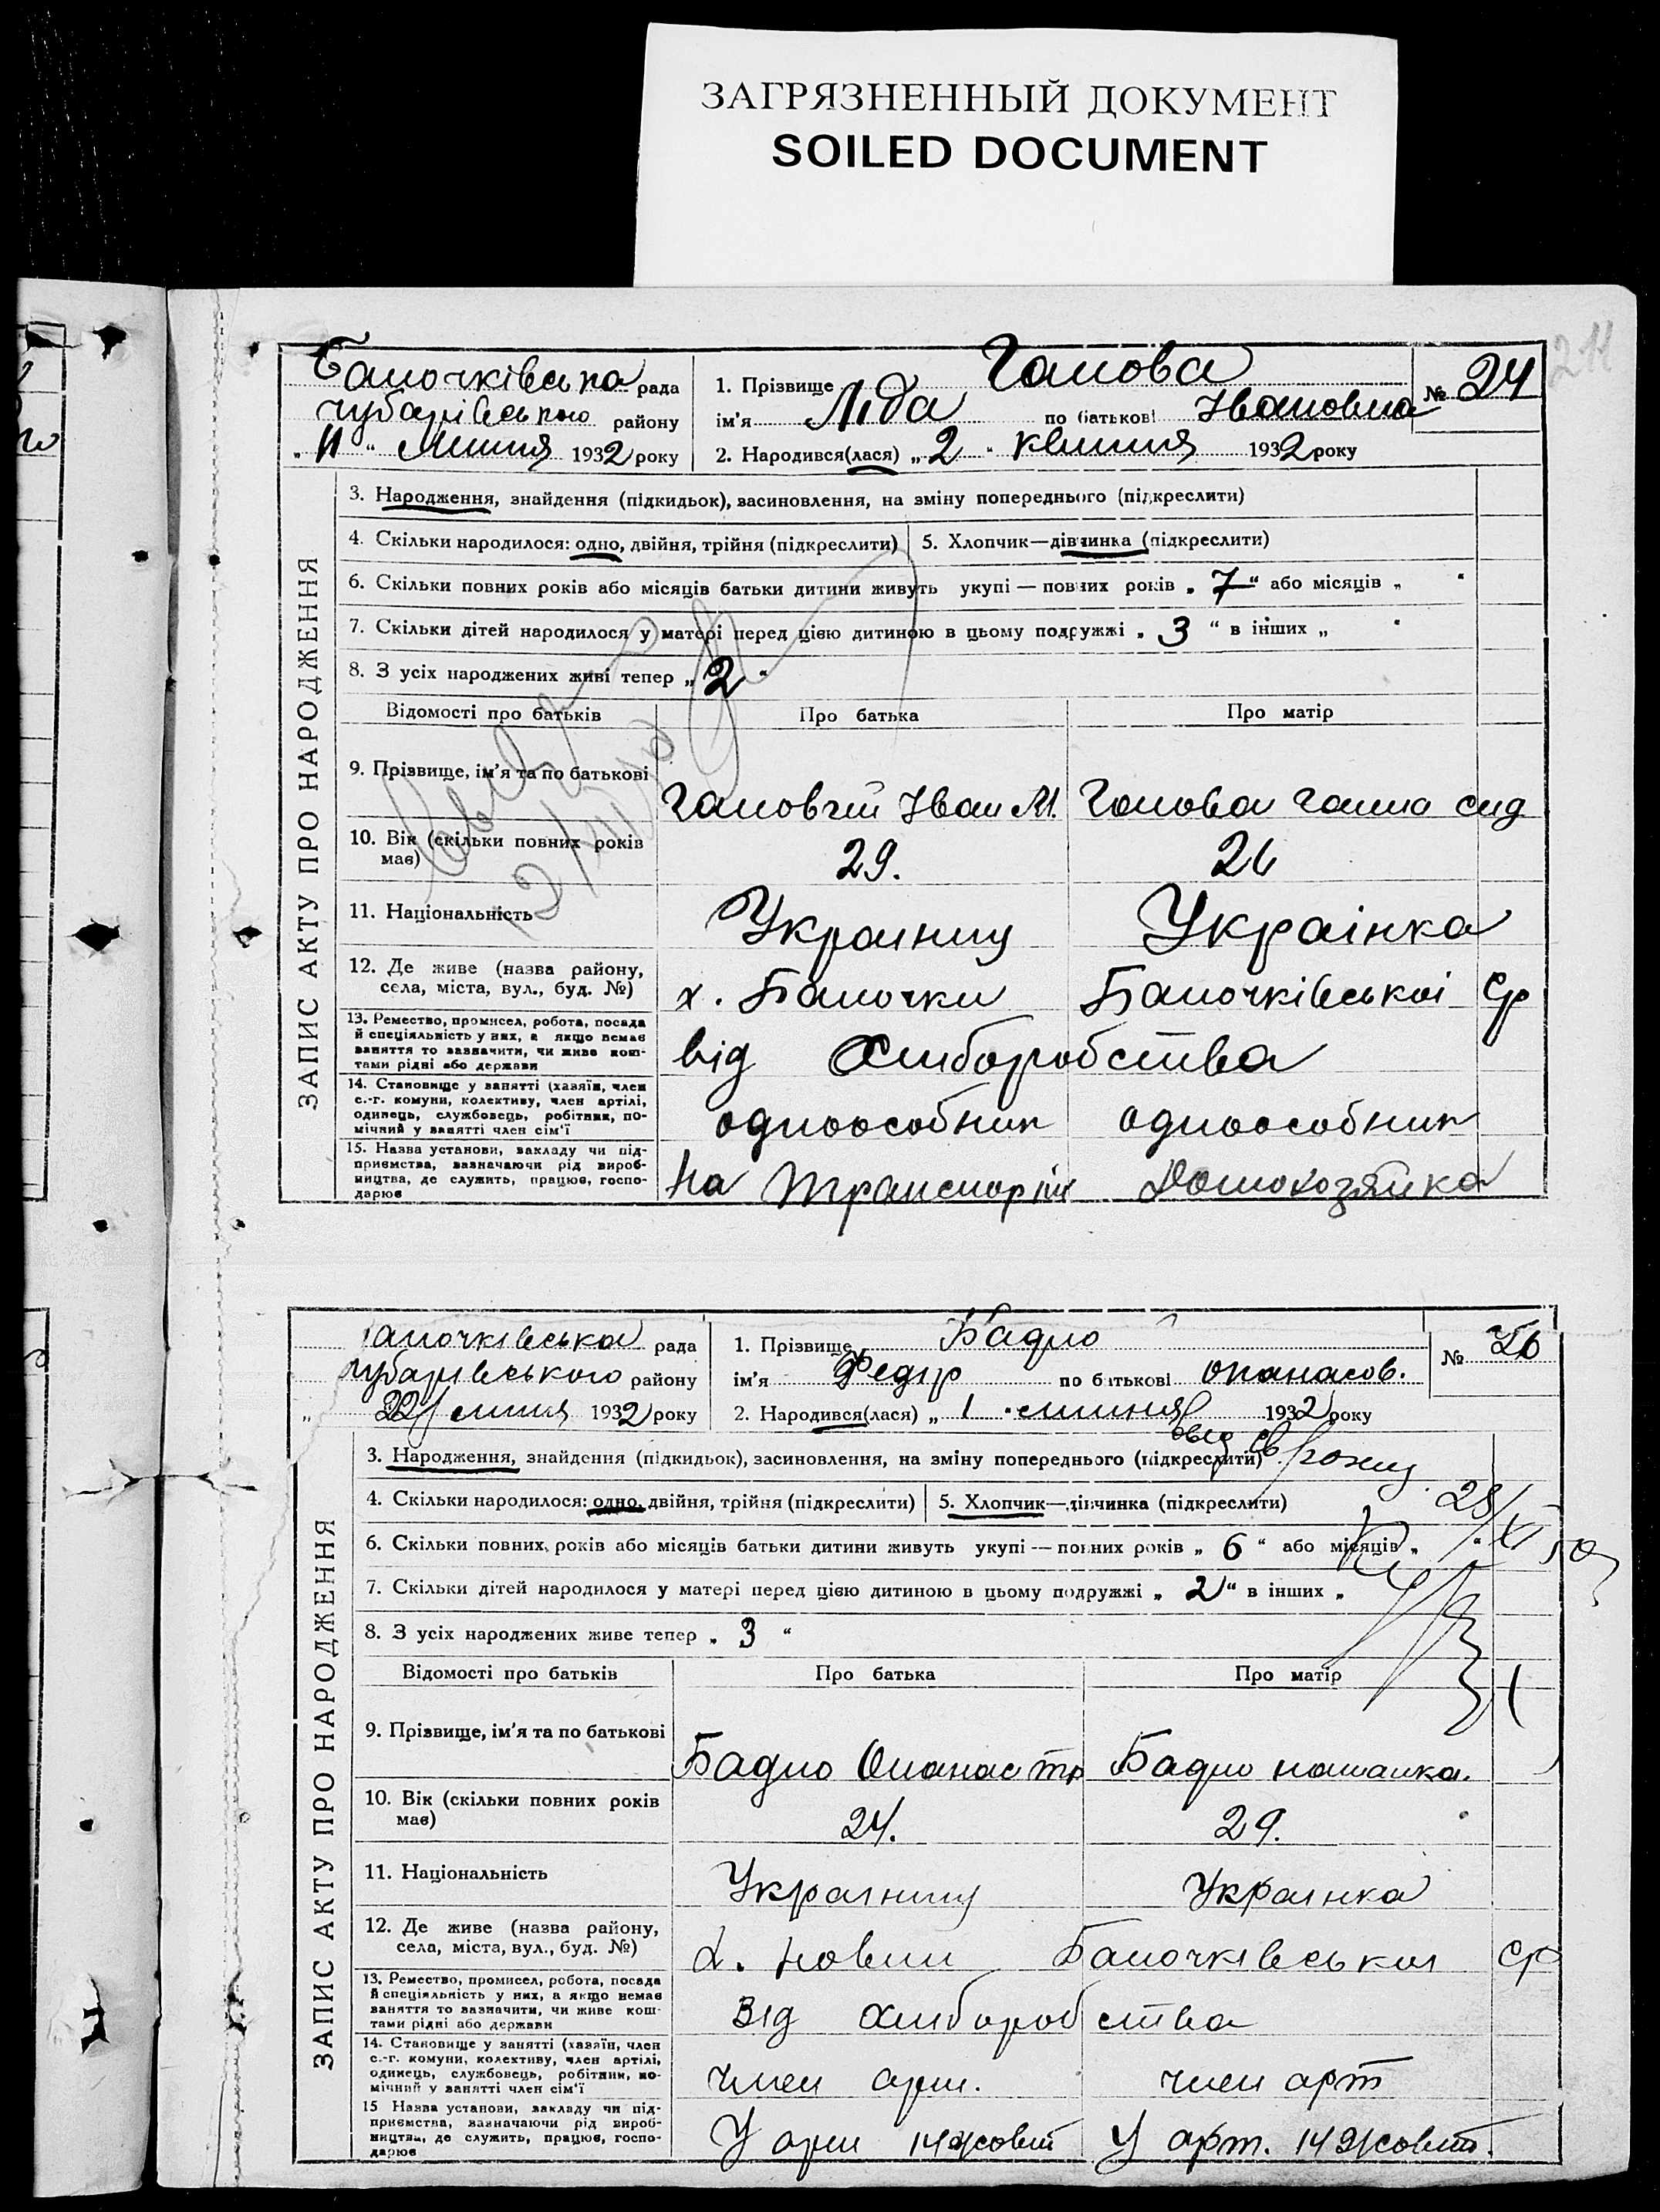 ЗАГРЯЗНЕННЫЙ ДОКУМЕНТ
SOILED DOCUMENT
211
ЗАПИС АКТУ ПРО НАРОДЖЕННЯ
Баночківська рада
Чубарівського району
„11“ липня 1932 року
1. Прізвище Ганова № 24
ім'я Ліда по батькові Івановна
2. Народився(лася) „2“ квітня 1932 року
3. Народження, знайдення (підкидьок), засиновлення, на зміну попереднього (підкреслити)
4. Скільки народилося: одно, двійня, трійня (підкреслити) 5. Хлопчик—дівчинка (підкреслити)
6. Скільки повних років або місяців батьки дитини живуть укупі — повних років „7“ або місяців „ “
7. Скільки дітей народилося у матері перед цією дитиною в цьому подружжі „3“ в інших „ “
8. З усіх народжених живі тепер „2“
Відомості про батьків Про батька Про матір
9. Прізвище, ім'я та по батькові
Іван М. Ганна Сид
10. Вік (скільки повних років має) 29. 26
11. Національність Украинец Українка
12. Де живе (назва району, села, міста, вул., буд. №) х. Баночки Баночківської ср
13. Ремество, промисел, робота, посада й спеціяльність у них, а якщо немає заняття то зазначити, чи живе коштами рідні або держави
від хліборобства
14. Становище у занятті (хазяїн, член с.-г. комуни, колективу, член артілі, одинець, службовець, робітник, помічний у занятті член сім'ї
одноособник одноособник
15. Назва установи, закладу чи підприємства, зазначаючи рід виробництва, де служить, працює, господарює
На транспорті Домохозяйка
ЗАПИС АКТУ ПРО НАРОДЖЕННЯ
аночківська рада
Чубарівського району
„22“ липня 1932 року
1. Прізвище Бадло №
ім'я Федір по батькові Опанасов.
2. Народився(лася) „1“ липня 1932 року
3. Народження, знайдення (підкидьок), засиновлення, на зміну попереднього (підкреслити)
4. Скільки народилося: одно, двійня, трійня (підкреслити) 5. Хлопчик—дівчинка (підкреслити)
28/XI 50
6. Скільки повних років або місяців батьки дитини живуть укупі — повних років „6“ або місяців „ “
7. Скільки дітей народилося у матері перед цією дитиною в цьому подружжі „2“ в інших „
8. З усіх народжених живе тепер „3“
Відомості про батьків Про батька Про матір
9. Прізвище, ім'я та по батькові
Бадло Опанас Тр Бадло
10. Вік (скільки повних років має) 24. 29.
11. Національність Украінец Украінка
12. Де живе (назва району, села, міста, вул., буд. №) х. Баночківськоі ср
13. Ремество, промисел, робота, посада й спеціяльність у них, а якщо немає заняття то зазначити, чи живе коштами рідні або держави
Від хліборобства
14. Становище у занятті (хазяїн, член с.-г. комуни, колективу, член артілі, одинець, службовець, робітник, помічний у занятті член сім'ї
член арт. член арт
15 Назва установи, закладу чи підприємства, зазначаючи рід виробництва, де служить, працює, господарює
У арт 14 Жовт У арт. 14 Жовт.